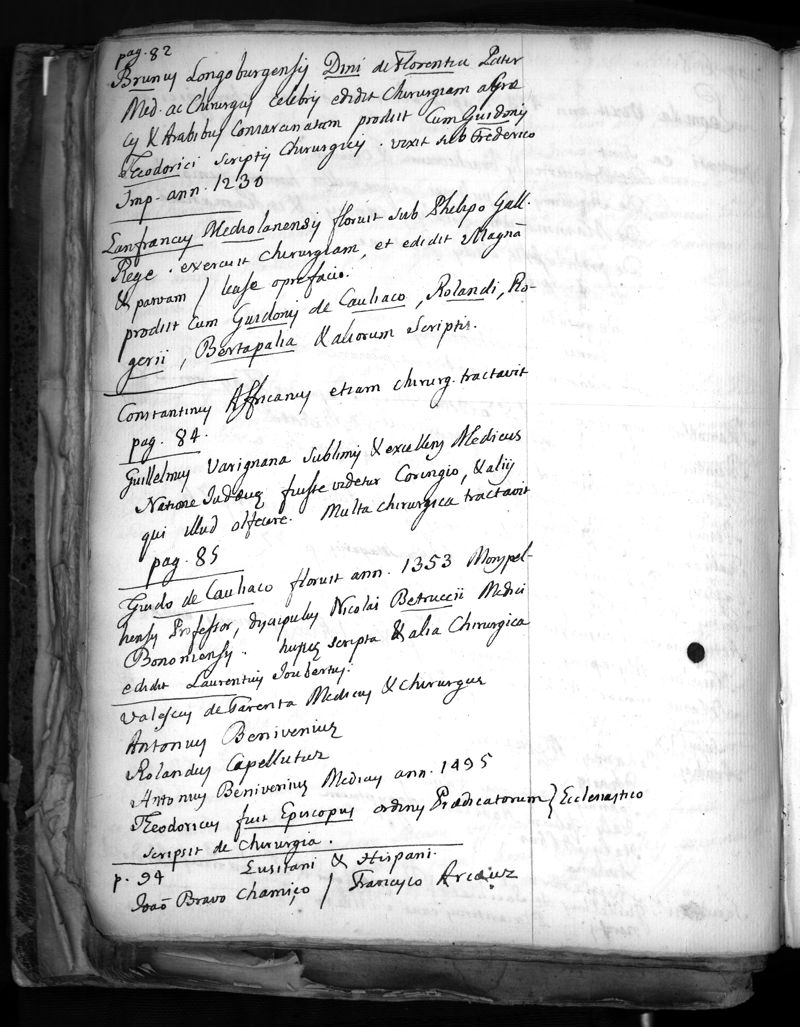 pag. 82
Brunus Longoburgensis Dini de Florentia Pater
Med. ac Chirurgus celebris edidit Chirurgiam a Græ
cis & Arabibus Consarcinatam prodiit Cum Guidonis
Teodorici scriptis Chirurgicis. vixit sub Federico
Imp. ann. 1230
Lanfrancus Mediolanensis floruit sub Phelipo Gall.
Rege. exercuit Chirurgiam, et edidit Magnā
& parvam /
prodiit Cum Guidonis de Cauliaco, Rolandi, Ro-
gerii, Bertapalia & aliorum Scriptis.
Constantinus Affricanus etiam chirurg. tractavit
pag. 84.
Guillelmus Varignana sublimis & excellens Medicus
Natione Iudæus fuisse videtur Coringio, & aliis
qui illud olfecere. Multa chirurgica tractavit
pag. 85
Guido de Cauliaco floruit ann. 1353 Monspel-
liensis Professor, discipulus Nicolai Betruccii Medici
Bononiensis. huius scripta & alia Chirurgica
edidit Laurentius Ioubertus.
Valescus de Tarenta Medicus & Chirurgus
Antonius Benivenius
Rolandus Capellutus
Antonius Benivenius Medicus ann. 1495
Teodoricus fuit Episcopus ordinis Prædicatorum } Ecclesiastico
scripsit de Chirurgia.
p. 94 Lusitani & Hispani.
Joaõ Bravo Chamiço / Francisco Arcæus